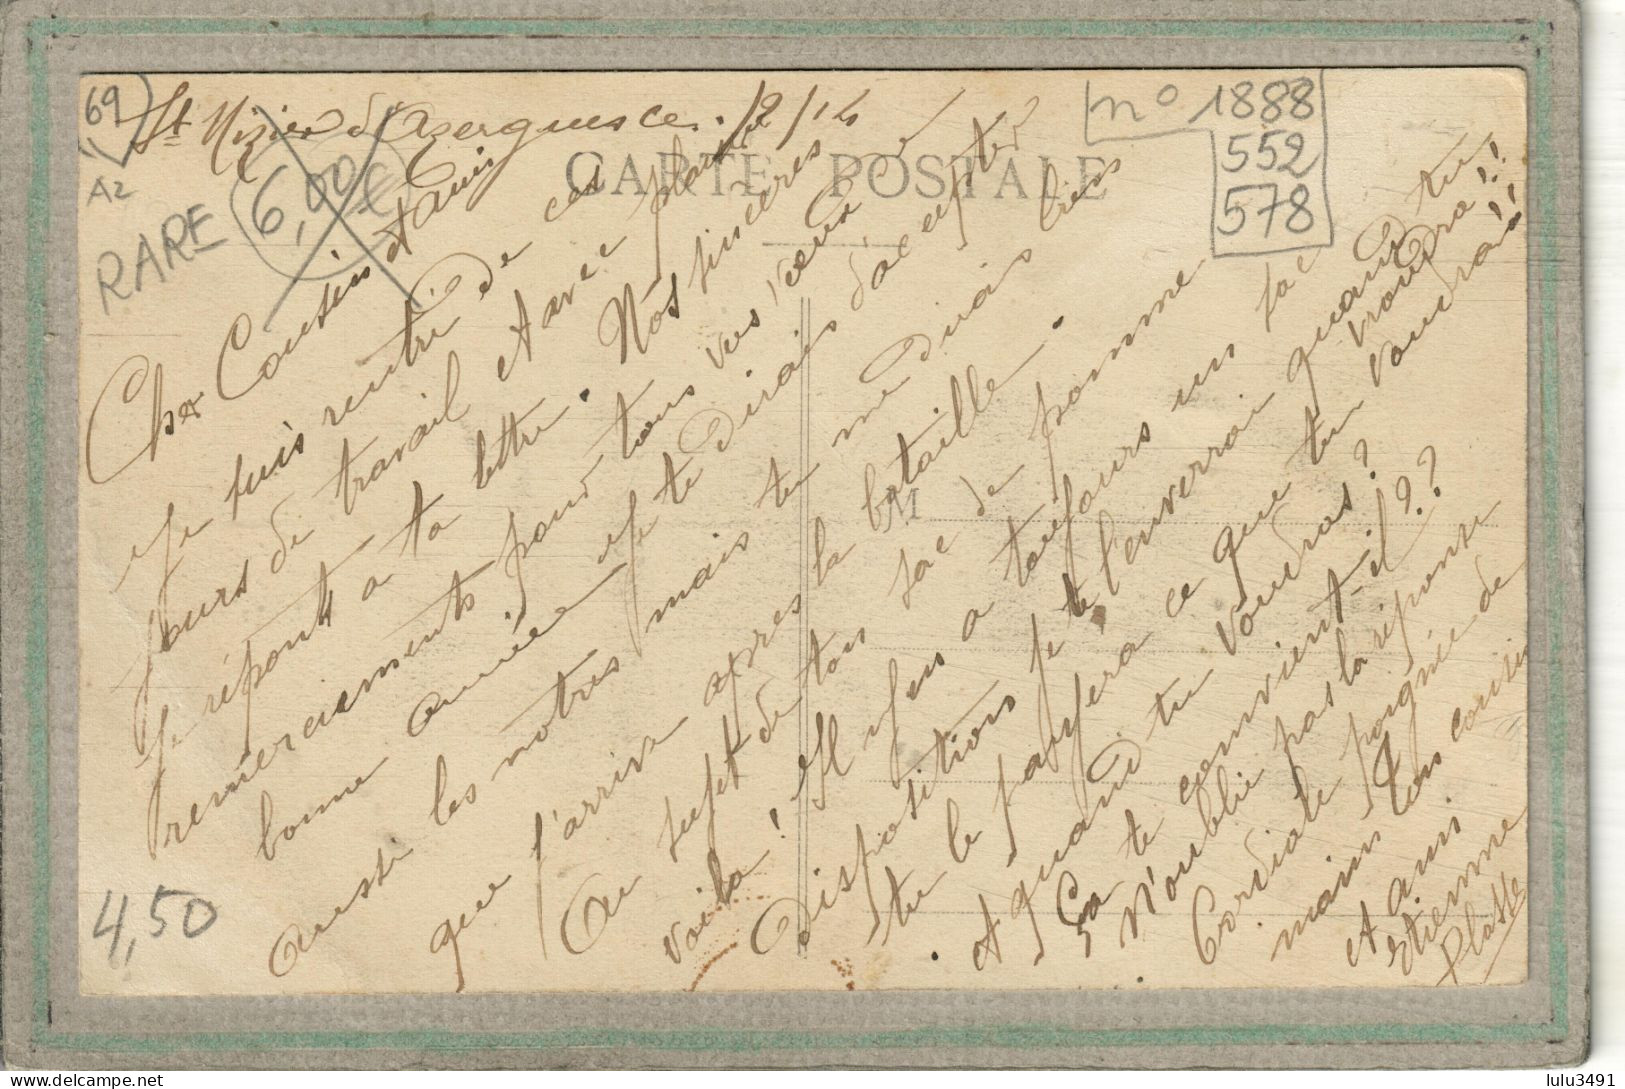 69
A2
RARE
6,00 €
n° 1888
552
578
4,50
CARTE POSTALE
M
St Nizier d'Azergues ce 12/14
Cher Cousin et ami
Je suis rentré de ces
jours de travail et avec plaisir
Je réponds a ta lettre. Nos sincères
remerciements pour tous vos vœux
bonne année Je te dirais d'accepter
aussi les notres mais tu me dirais bien
que j'arrive apres la bataille.
Au sujet de ton sac de pomme
voila! Il y en a toujours un sac
disposition Je te l'enverrai quand tu voudra!!
tu le payera ce que tu voudrais!!
et quand tu voudras?
Ça te convient-il??
N'oublie pas la réponse
Cordiale poignée de
main Ton cousin
et ami
Etienne
Plasse
lulu3491